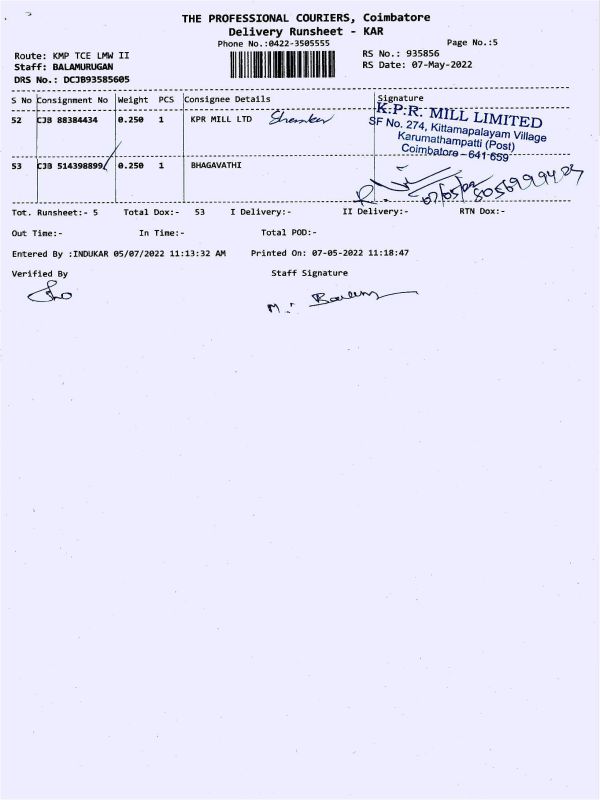 THE PROFESSIONAL COURIERS, Coimbatore
Delivery Runsheet - KAR
Phone No.:0422-3505555
Page No.:5
Route: KMP TCE LMW II
RS No.: 935856
Staff: BALAMURUGAN
RS Date: 07-May-2022
DRS No.: DCJB93585605
S No Consignment No Weight PCS Consignee Details Signature
52 CJB 88384434 0.250 1 KPR MILL LTD
K.P.R. MILL LIMITED
SF No. 274, Kittamapalayam Village
Karumathampatti (Post)
Coimbatore - 641 659
53 CJB 514398899 0.250 1 BHAGAVATHI
07/05/22
Tot. Runsheet:- 5 Total Dox:- 53 I Delivery:- II Delivery:- RTN Dox:-
Out Time:- In Time:- Total POD:-
Entered By :INDUKAR 05/07/2022 11:13:32 AM Printed On: 07-05-2022 11:18:47
Verified By Staff Signature